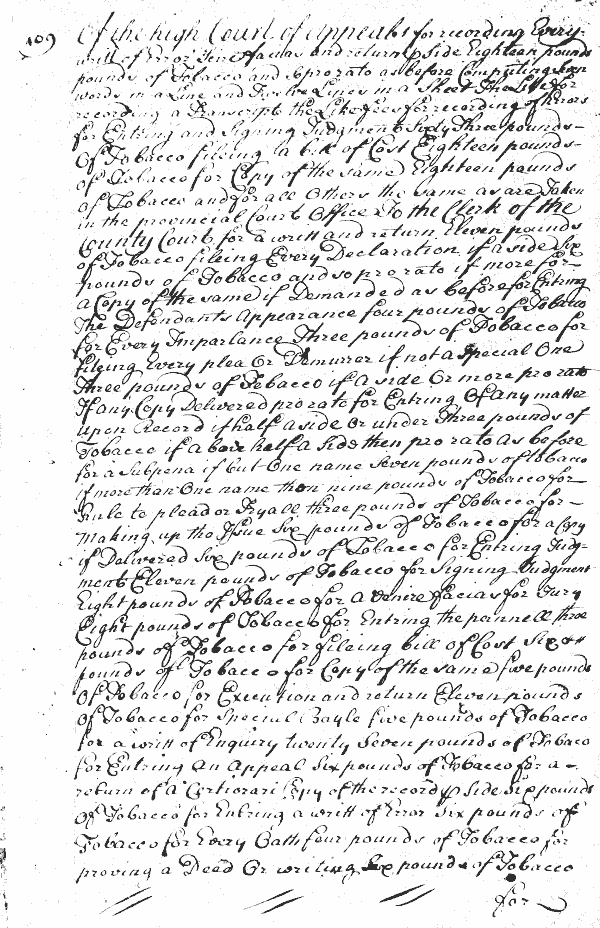 409
Of the high Court of appeals for recording Every
writt of Error Fire facias and return p side Eighteen pounds
pounds of Tobacco and so pro rato as before Computing Seven
words in a Line and Twelve Lines in a Sheet The like for
recording a Transcript the Like fees for recording of Errors
for Entring and Signing Judgment Sixty Three pounds
Of Tobacco fileing a bill of Cost Eighteen pounds
of Tobacco for Copy of the same Eighteen pounds
of Tobacco and for all Others the same as are Taken
in the provincial Court Office To the Clerk of the
County Court for a writt and return Eleven pounds
of Tobacco fileing Every Declaration if a side Six
pounds of Tobacco and so pro rato if more for
a Copy of the same if Demanded as before for Entring
The Defendants Appearance four pounds of Tobacco
for Every Imparlance Three pounds of Tobacco for
fileing Every plea Or Demurrer if not a Special One
Three pounds of Tobacco if a side Or more pro rato
If any Copy Delivered pro rato for Entring Of any matter
upon Record if half a side or under Three pounds of
Tobacco if above half a Side then pro rato as before
for a Subpena if but One name Seven pounds of tobacco
if more than One name then nine pounds of Tobacco for
Rule to plead or Tryall three pounds of Tobacco for
making up the Issue Six pounds of Tobacco for a Copy
if Delivered Six pounds of Tobacco for Entring Judg-
ment Eleven pounds of Tobacco for Signing Judgment
Eight pounds of Tobacco for a Venire facias for Jury
Eight pounds of Tobacco for Entring the pannell three
pounds of Tobacco for fileing bill of Cost Six
pounds of Tobacco for Copy of the same five pounds
Of Tobacco for Execution and return Eleven pounds
Of Tobacco for Special Bayle five pounds of Tobacco
for a writt of Enquiry twenty Seven pounds of Tobaco
for Entring an Appeal Six pounds of Tobacco for a
return of a Certiorari Copy of the record p side Six pounds
Of Tobacco for Entring a writt of Error Six pounds of
Tobacco for Every Oath four pounds of Tobacco for
proving a Deed Or writing Six pounds of Tobacco
for